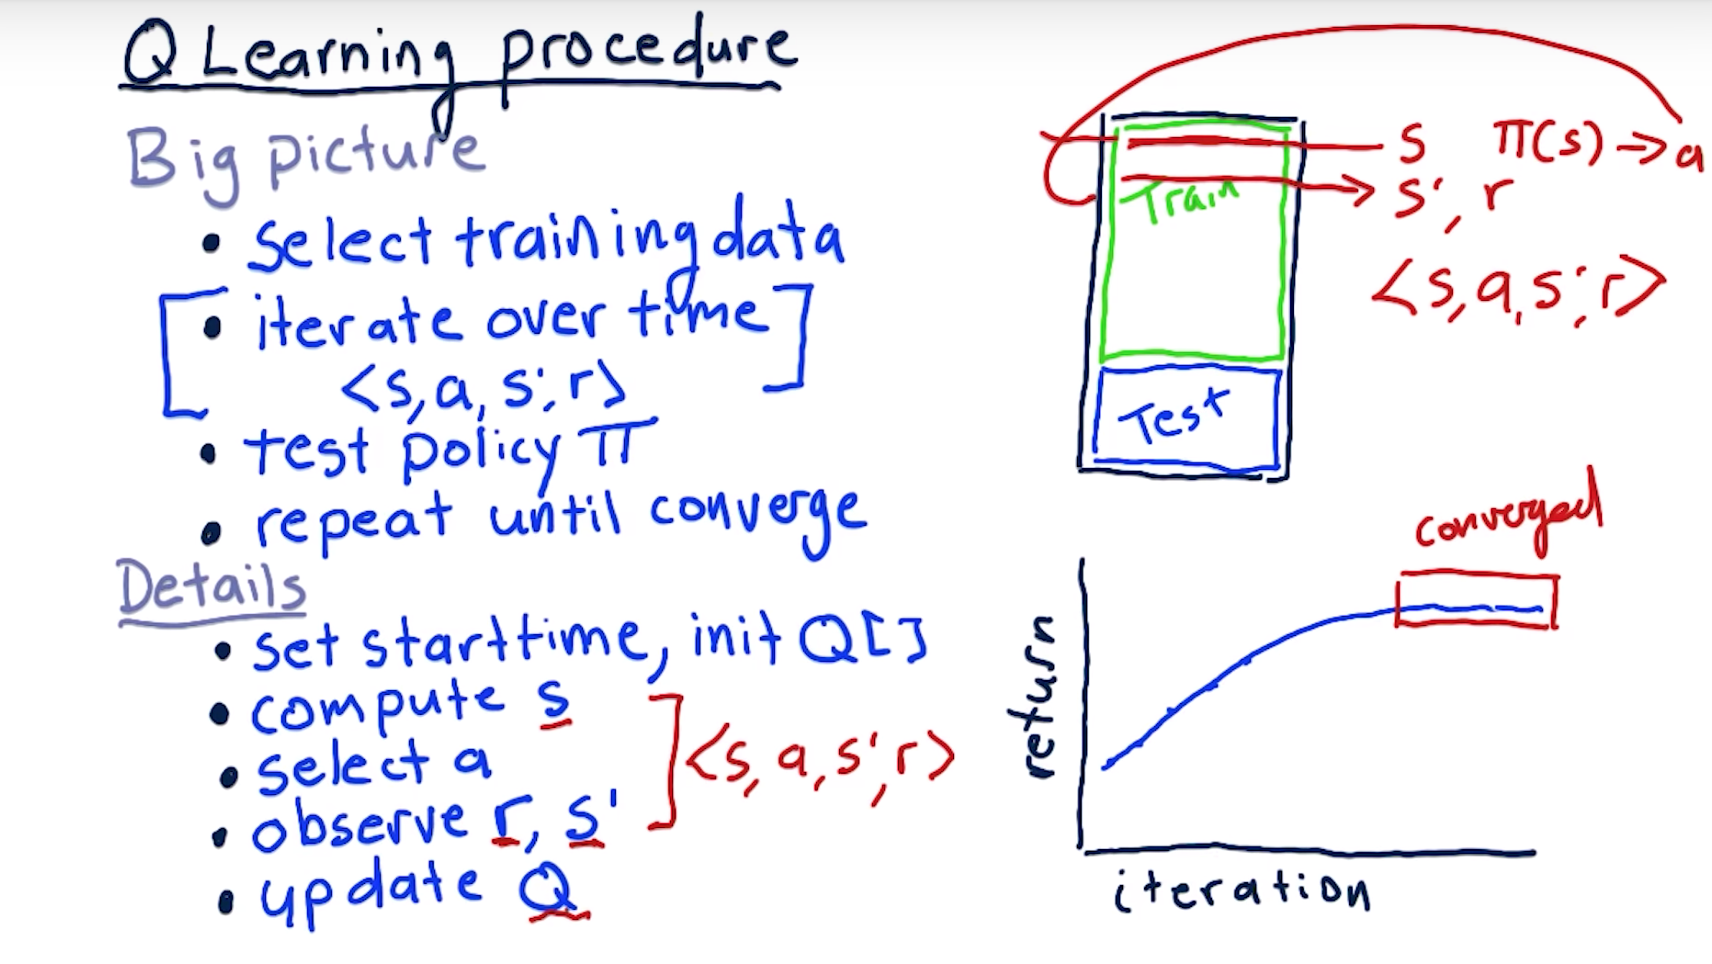 Q Learning procedure
Big picture
• select training data
• iterate over time
<s, a, s', r>
• test policy π
• repeat until converge
Details
• set starttime, init Q[]
• compute s
• select a
• observe r, s'
• update Q
<s, a, s', r>
Train
Test
s π(s) → a
s', r
<s, a, s', r>
converged
return
iteration